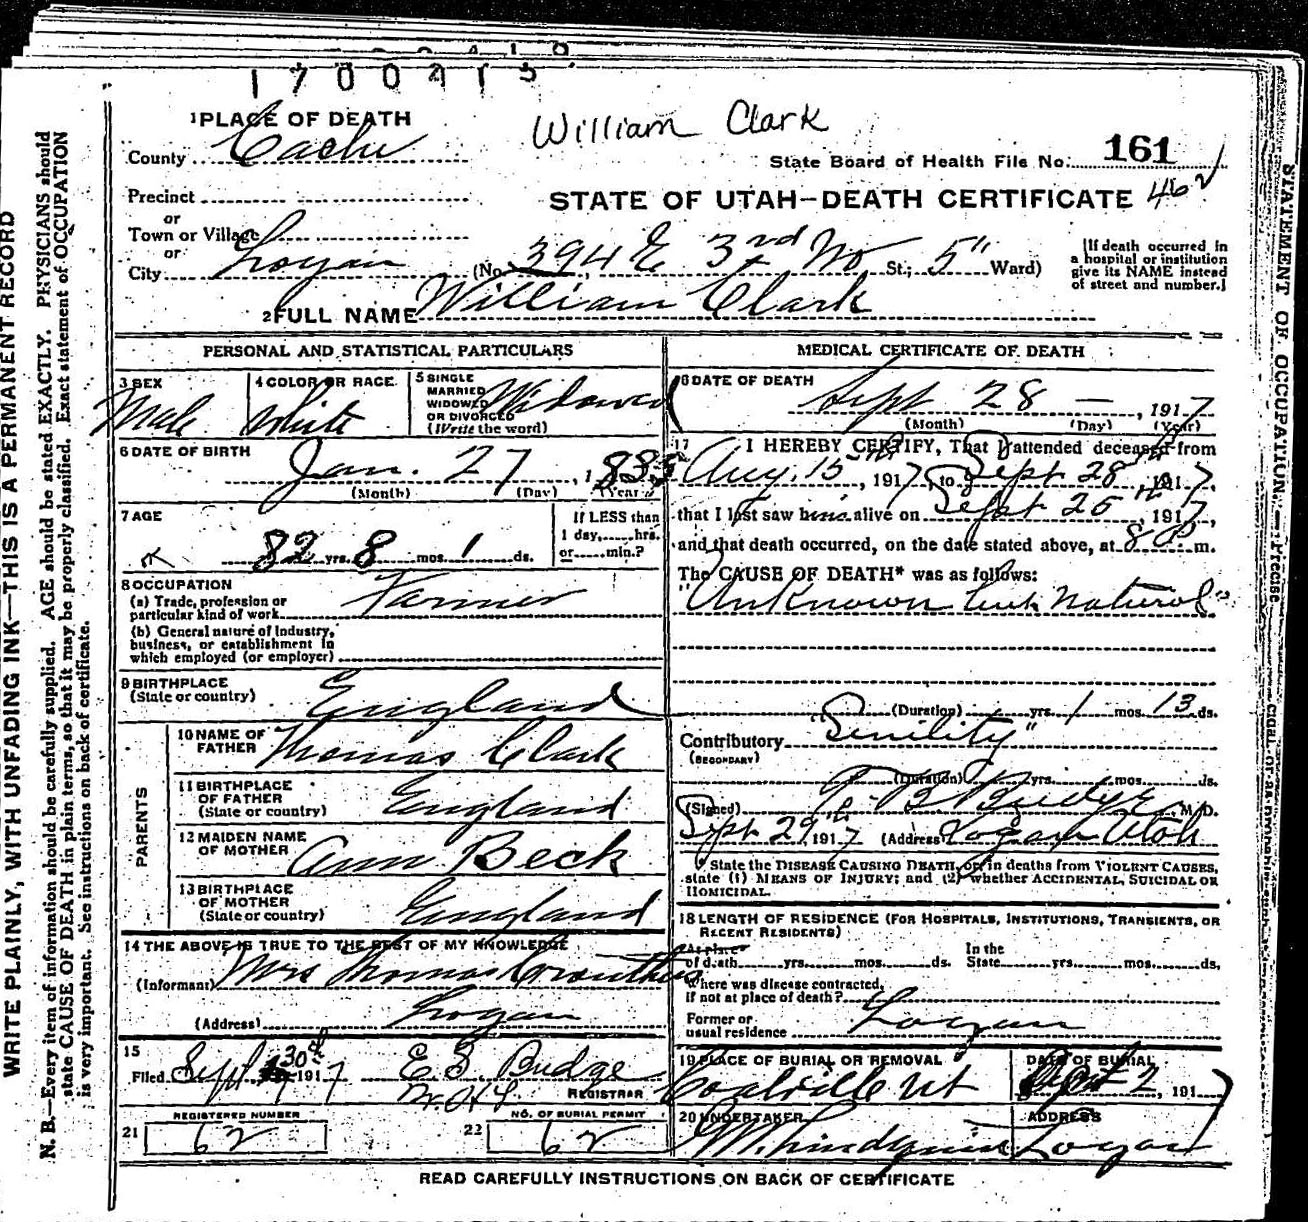 1700415
William Clark
1 PLACE OF DEATH
County Cache
State Board of Health File No. 161
Precinct
STATE OF UTAH—DEATH CERTIFICATE 462
or
Town or Village
or
City Logan (No. 394 E 3rd No St.; 5" Ward)
[If death occurred in a hospital or institution give its NAME instead of street and number.]
2 FULL NAME William Clark
PERSONAL AND STATISTICAL PARTICULARS
3 SEX Male
4 COLOR OR RACE White
5 SINGLE MARRIED WIDOWED OR DIVORCED (Write the word) Widowed
6 DATE OF BIRTH
Jan. 27, 1835
(Month) (Day) (Year)
7 AGE
82 yrs. 8 mos. 1 ds.
If LESS than 1 day,......hrs. or......min.?
8 OCCUPATION
(a) Trade, profession or particular kind of work Farmer
(b) General nature of Industry, business, or establishment in which employed (or employer)
9 BIRTHPLACE
(State or country) England
PARENTS
10 NAME OF FATHER Thomas Clark
11 BIRTHPLACE OF FATHER (State or country) England
12 MAIDEN NAME OF MOTHER Ann Beck
13 BIRTHPLACE OF MOTHER (State or country) England
14 THE ABOVE IS TRUE TO THE BEST OF MY KNOWLEDGE
(Informant) Mrs Thomas
(Address) Logan
15
Filed Sept 30th 1917 E. S. Budge
REGISTRAR
REGISTERED NUMBER
21 62
NO. OF BURIAL PERMIT
22 62
MEDICAL CERTIFICATE OF DEATH
16 DATE OF DEATH
Sept 28 — , 1917
(Month) (Day) (Year)
17 I HEREBY CERTIFY, That I attended deceased from
Aug. 15th, 1917, to Sept 28th, 1917,
that I last saw him alive on Sept 25th, 1917,
and that death occurred, on the date stated above, at 8 P m.
The CAUSE OF DEATH* was as follows:
"Unknown but Natural"
(Duration) yrs. 1 mos. 13 ds.
Contributory "Senility"
(SECONDARY)
(Duration) yrs. mos. ds.
(Signed) T. B. Budge, M. D.
Sept 29th, 1917 (Address) Logan Utah
* State the DISEASE CAUSING DEATH, or, in deaths from VIOLENT CAUSES, state (1) MEANS OF INJURY; and (2) whether ACCIDENTAL, SUICIDAL OR HOMICIDAL.
18 LENGTH OF RESIDENCE (FOR HOSPITALS, INSTITUTIONS, TRANSIENTS, OR RECENT RESIDENTS)
At place of death yrs. mos. ds. In the State yrs. mos. ds.
Where was disease contracted, if not at place of death?
Former or usual residence Logan
19 PLACE OF BURIAL OR REMOVAL
Coalville Ut
DATE OF BURIAL
2, 1917
20 UNDERTAKER
ADDRESS
Logan
READ CAREFULLY INSTRUCTIONS ON BACK OF CERTIFICATE
WRITE PLAINLY, WITH UNFADING INK—THIS IS A PERMANENT RECORD
N. B.—Every item of information should be carefully supplied. AGE should be stated EXACTLY. PHYSICIANS should
state CAUSE OF DEATH in plain terms, so that it may be properly classified. Exact statement of OCCUPATION
is very important. See instructions on back of certificate.
STATEMENT OF OCCUPATION.—Precise